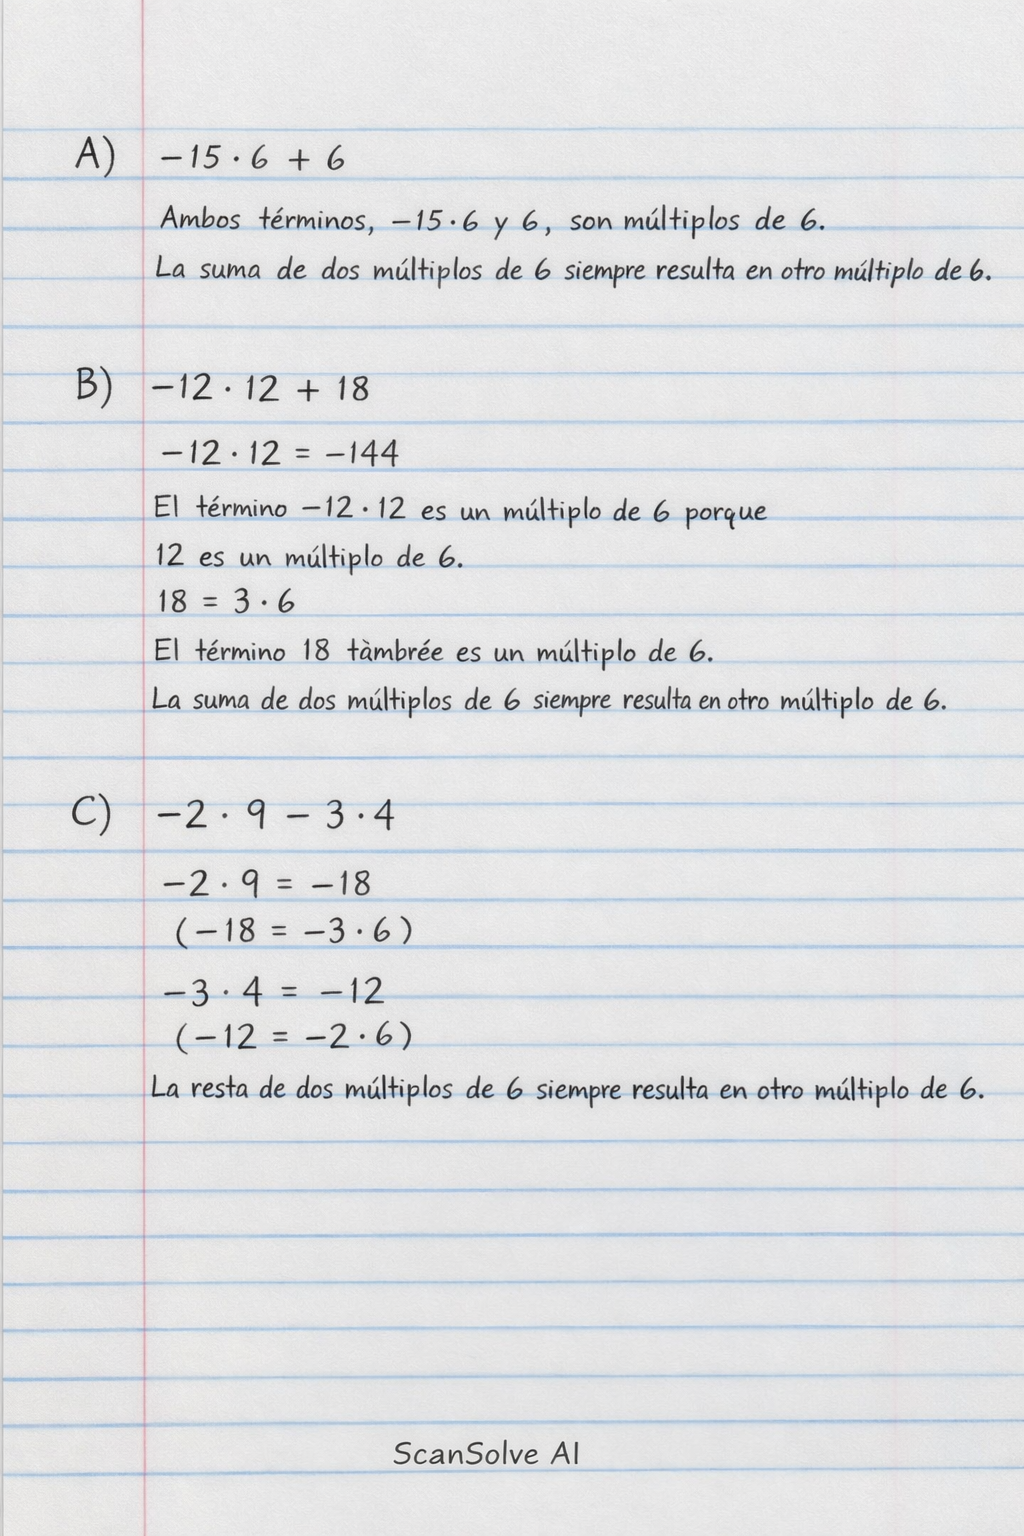 A) −15 · 6 + 6
Ambos términos, −15 · 6 y 6, son múltiplos de 6.
La suma de dos múltiplos de 6 siempre resulta en otro múltiplo de 6.
B) −12 · 12 + 18
−12 · 12 = −144
El término −12 · 12 es un múltiplo de 6 porque
12 es un múltiplo de 6.
18 = 3 · 6
El término 18 tàmbrée es un múltiplo de 6.
La suma de dos múltiplos de 6 siempre resulta en otro múltiplo de 6.
C) −2 · 9 − 3 · 4
−2 · 9 = −18
(−18 = −3 · 6)
−3 · 4 = −12
(−12 = −2 · 6)
La resta de dos múltiplos de 6 siempre resulta en otro múltiplo de 6.
ScanSolve AI